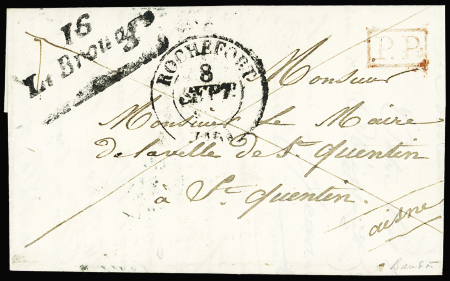 16
La Brouage
ROCHEFORT
8
SEPT
P.P.
Monsieur
Monsieur le Maire
de la ville de St quentin
a St quentin
aisne